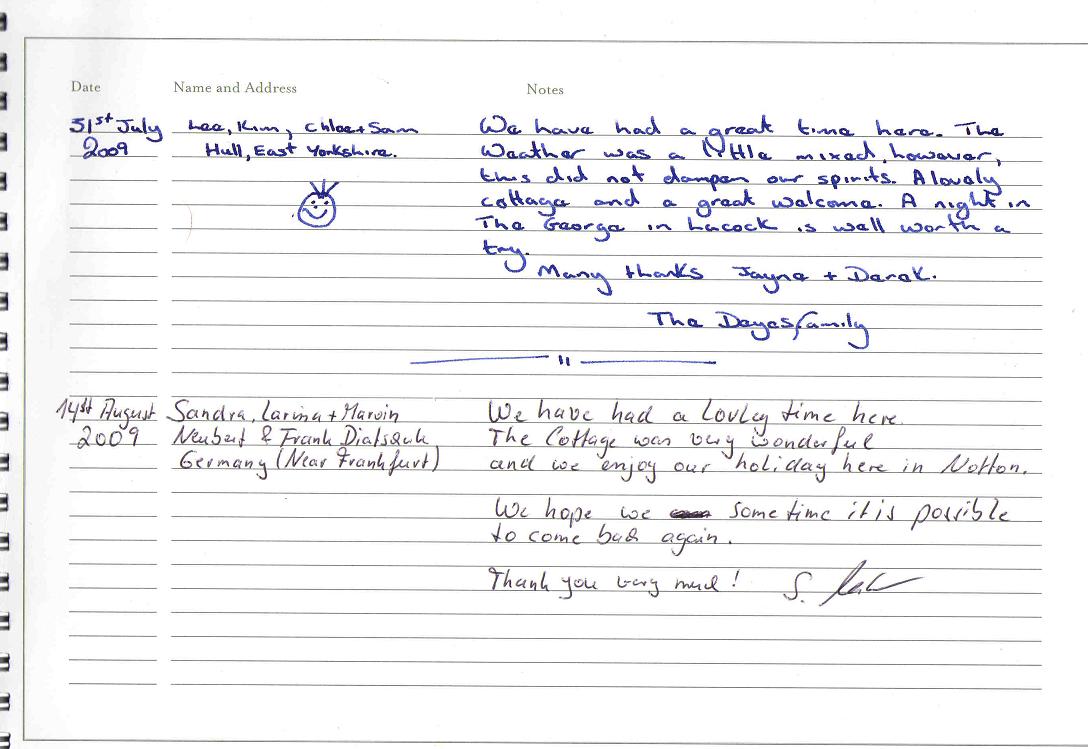 Date Name and Address Notes
31st July Lee, Kim, Chloe + Sam We have had a great time here. The
2009 Hull, East Yorkshire. Weather was a little mixed, however,
this did not dampen our spirits. A lovely
cottage and a great welcome. A night in
The George in Lacock is well worth a
try.
Many thanks Jayne + Derek.
The Deyes family
14st August Sandra, Larina + Marvin We have had a Lovley time here.
2009 Neubert & Frank The Cottage was very wonderful
Germany (Near Frankfurt) and we enjoy our holiday here in Notton.
We hope we some time it is possible
to come back again.
Thank you very much! S.